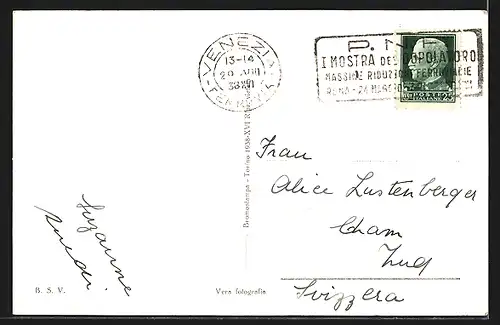 VENEZIA
13-14
FERROVIA
P.N.F.
I MOSTRA DEL DOPOLAVORO
MASSIME RIDUZIONI FERROVIARIE
ROMA - 24 MAGGIO
Frau
Alice Lustenberger
Cham
Zug
Svizzera
Suzanne
Ruedi
Bromostampa - Torino 1938-XVI
B. S. V.
Vera fotografia